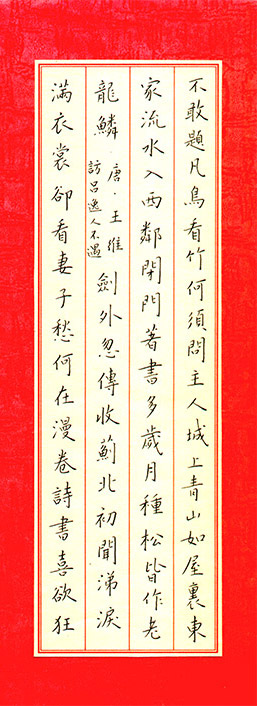 不敢題凡鳥看竹何須問主人城上青山如屋裏東
家流水入西鄰閉門著書多歲月種松皆作老
龍鱗．唐．王維
訪呂逸人不遇
劍外忽傳收薊北初聞涕淚
滿衣裳卻看妻子愁何在漫卷詩書喜欲狂